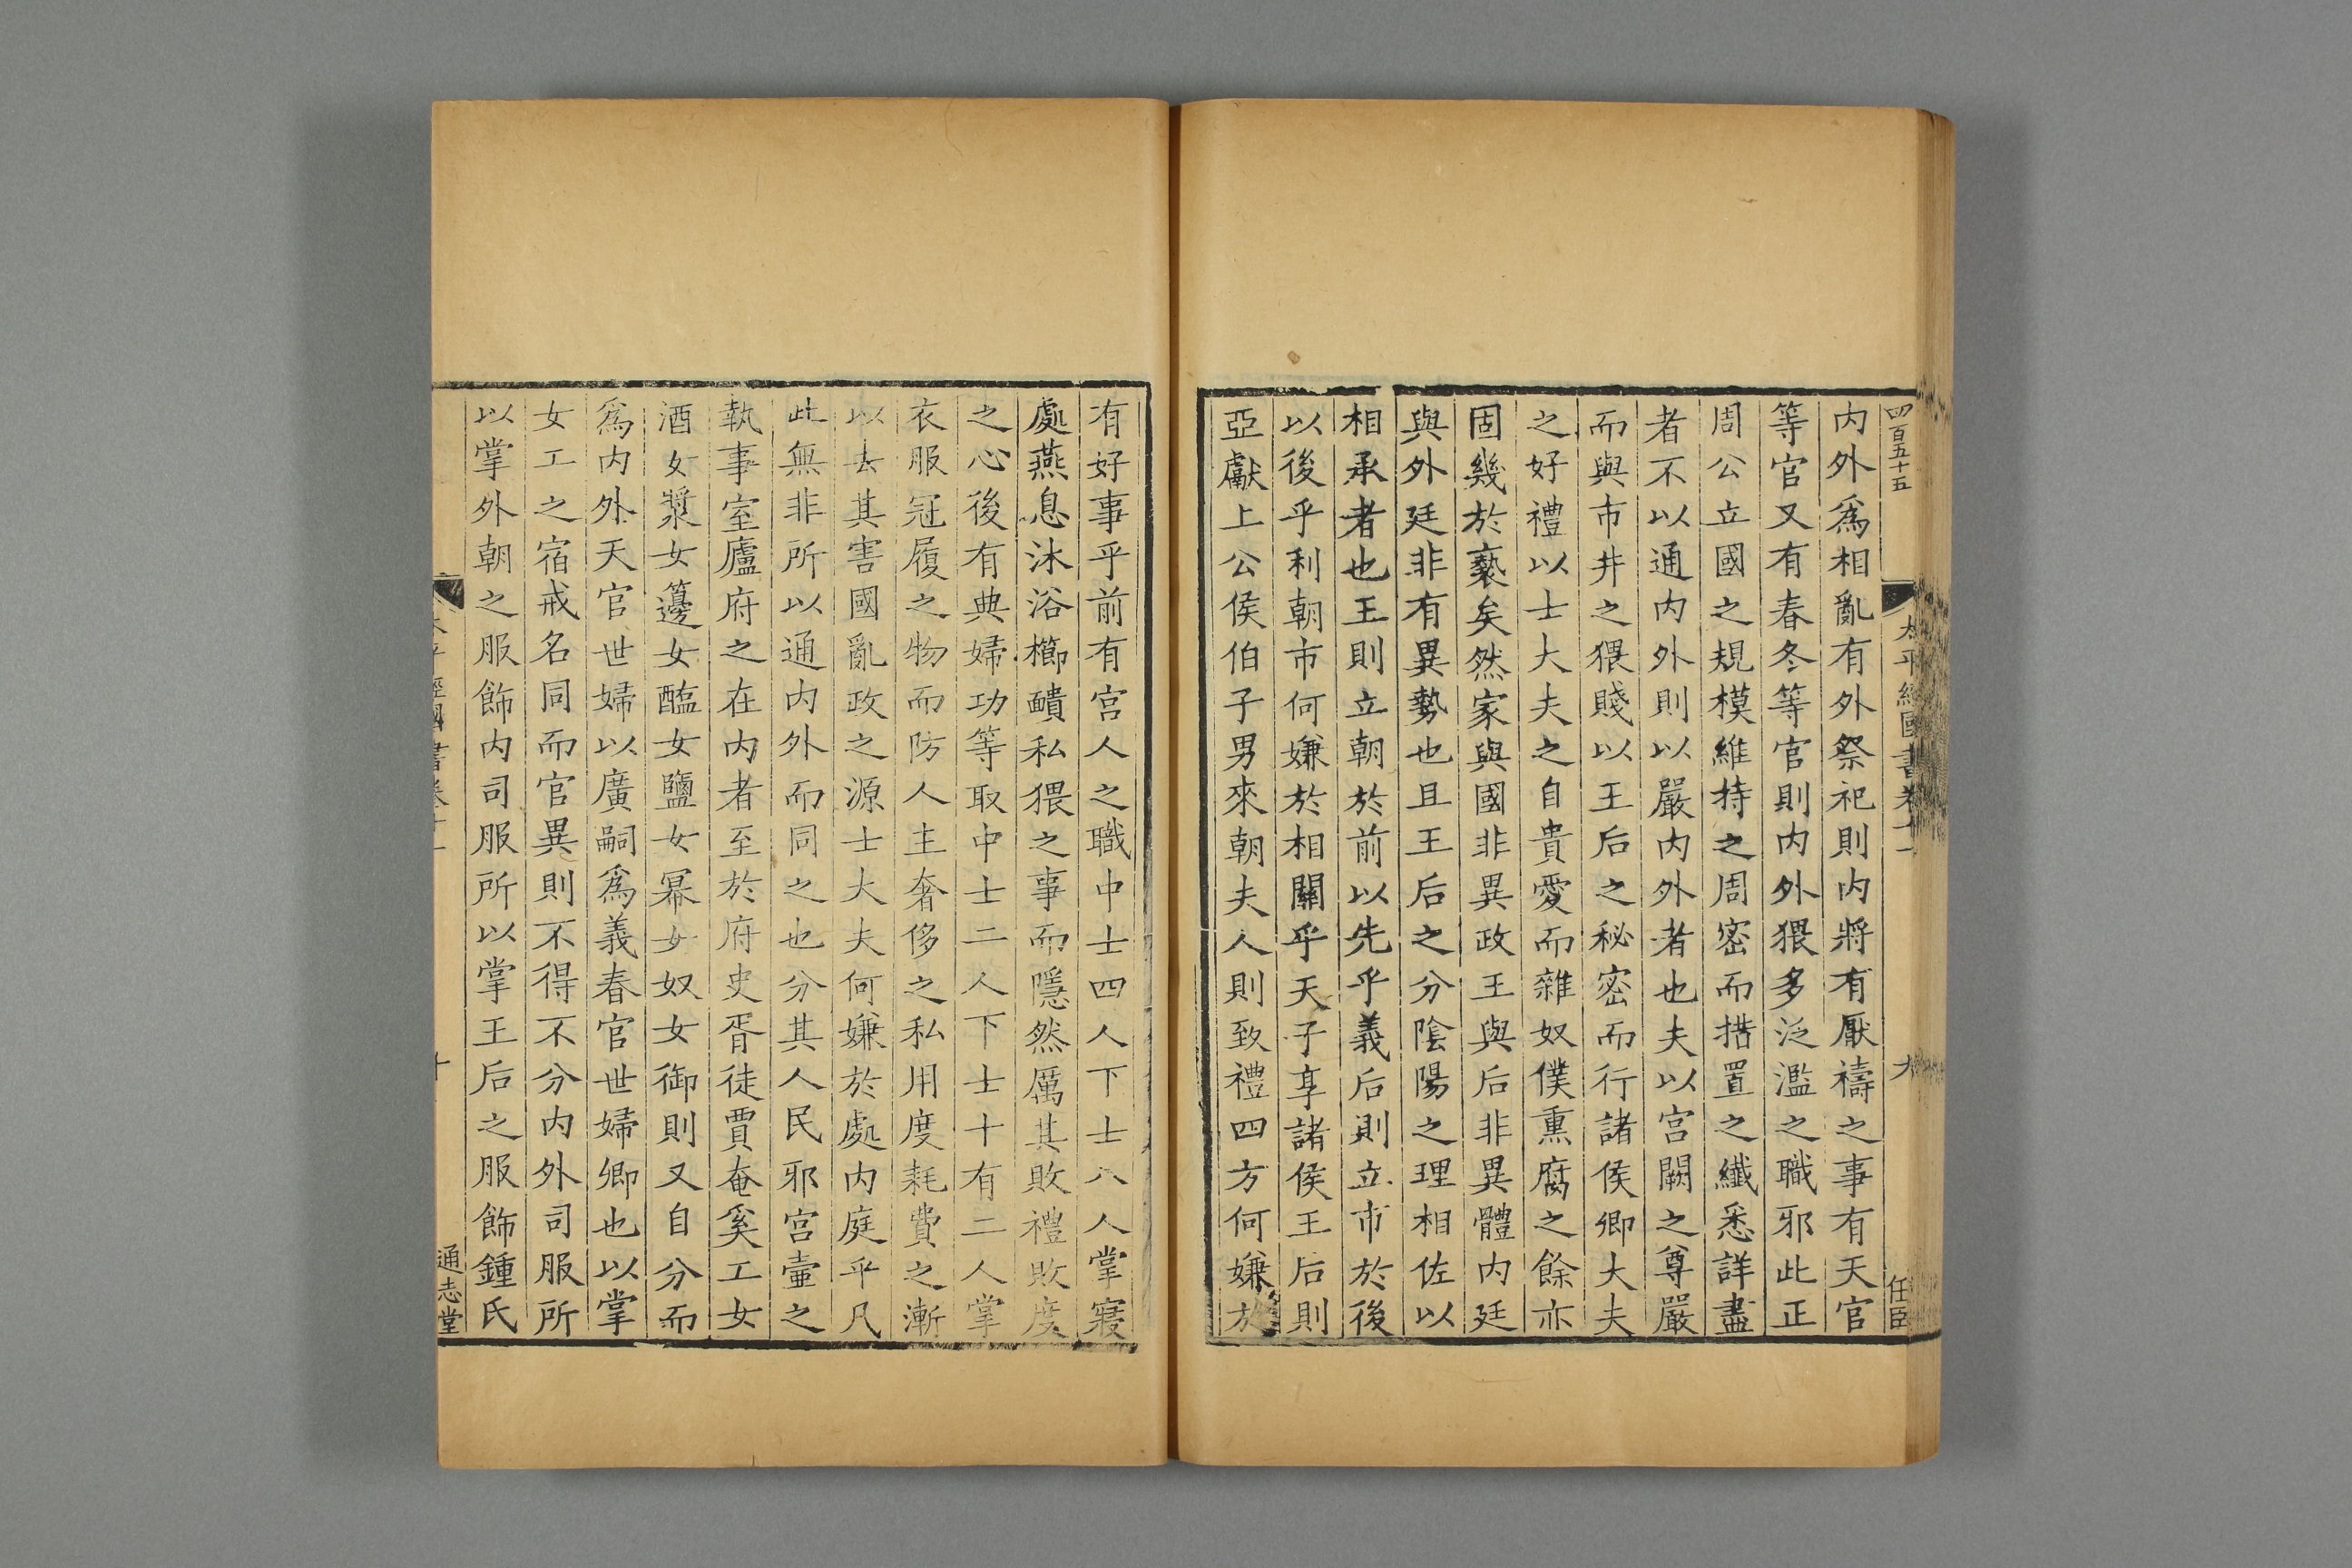 四百五十五
太平經國書卷十一
九
任臣
内外爲相亂有外祭祀則内將有厭禱之事有天官
等官又有春冬等官則内外猥多泛濫之職邪此正
周公立國之規模維持之周密而措置之纖悉詳盡
者不以通内外則以嚴内外者也夫以宫闕之尊嚴
而與市井之猥賤以王后之秘密而行諸侯卿大夫
之好禮以士大夫之自貴愛而雜奴僕熏腐之餘亦
固幾於褻矣然家與國非異政王與后非異體内廷
與外廷非有異勢也且王后之分陰陽之理相佐以
相承者也王則立朝於前以先乎義后則立市於後
以後乎利朝市何嫌於相關乎天子享諸侯王后則
亞獻上公侯伯子男來朝夫人則致禮四方何嫌於
有好事乎前有宫人之職中士四人下士八人掌寢
處燕息沐浴櫛靧私猥之事而隱然厲其敗禮敗度
之心後有典婦功等取中士二人下士十有二人掌
衣服冠履之物而防人主奢侈之私用度耗費之漸
以去其害國亂政之源士大夫何嫌於處内庭乎凡
此無非所以通内外而同之也分其人民邪宫壷之
執事室廬府之在内者至於府史胥徒賈奄奚工女
酒女漿女籩女醢女鹽女冪女奴女御則又自分而
爲内外天官世婦以廣嗣爲義春官世婦卿也以掌
女工之宿戒名同而官異則不得不分内外司服所
以掌外朝之服飾内司服所以掌王后之服飾鍾氏
太平經國書卷十一
十
通志堂